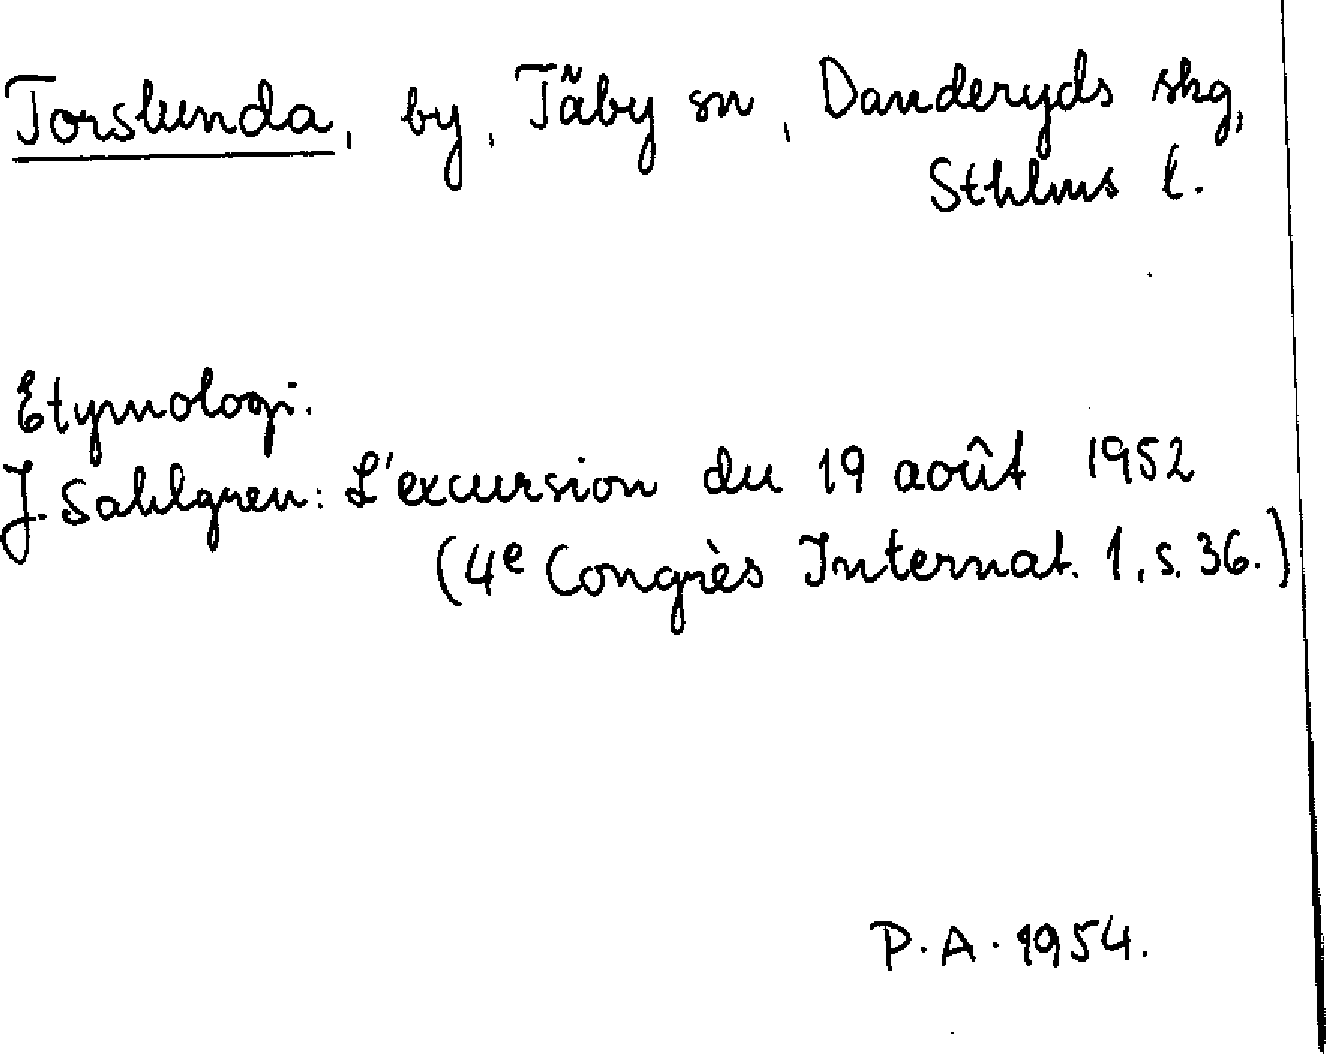 Torslunda, by, Täby sn, Danderyds skg,
Sthlms l.
Etymologi.
J. Sahlgren: L'excursion du 19 août 1952
(4e Congrès Internat. 1, s. 36.)
P. A. 1954.